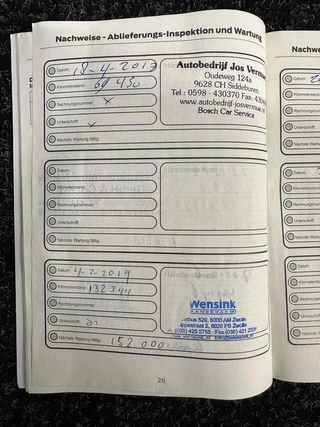 Nachweise - Ablieferungs-Inspektion und Wartung
Nachwe
Datum: 18-4-2017
Kilometerstand:
Rechnungsnummer: x
Unterschrift: x
Nächste Wartung fällig:
Autobedrijf Jos Vermue
Oudeweg 124a
9628 CH Siddeburen
Tel.: 0598 - 430370 Fax: 430
www.autobedrijf-josvermue.n
Bosch Car Service
Datum:
Kilometerstand:
Rechnungsnummer:
Unterschrift:
Nächste Wartung fällig:
Händlerstempel
Datum: 4-2-2019
Kilometerstand: 132344
Rechnungsnummer:
Unterschrift:
Nächste Wartung fällig: 152000
Händlerstempel
Wensink
Postbus 529, 8000 AM Zwolle
8026 PS Zwolle
28